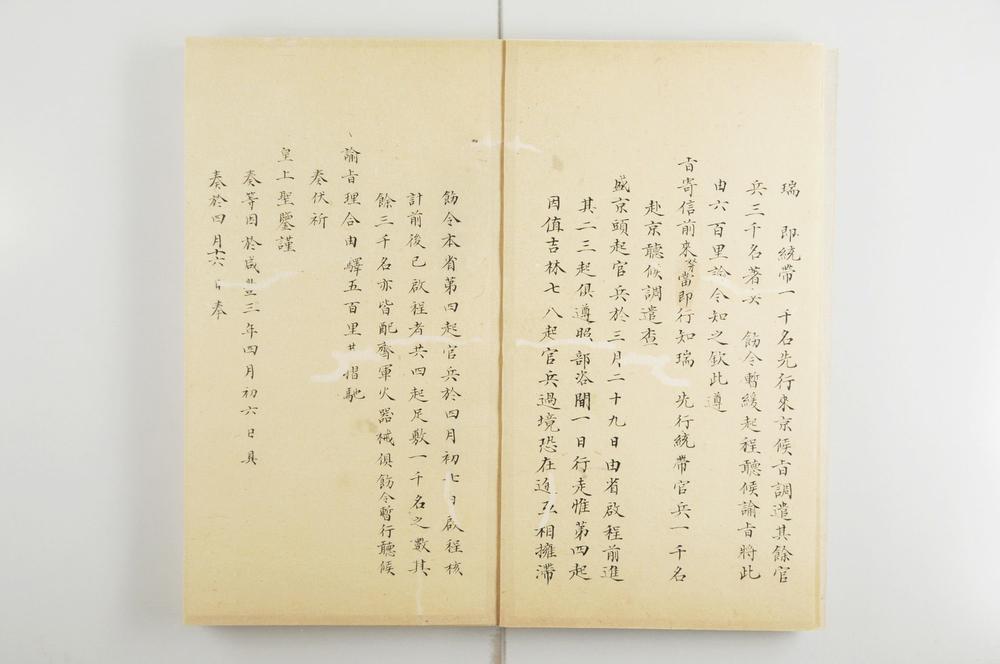 瑞 即統帶一千名先行來京候旨調遣其餘官
兵三千名著 飭令暫緩起程聽候諭旨將此
由六百里諭令知之欽此遵
旨寄信前來等當即行知瑞 先行統帶官兵一千名
赴京聽候調遣查
盛京頭起官兵於三月二十九日由省啟程前進
其二三起俱遵照部咨間一日行走惟第四起
因值吉林七八起官兵過境恐在途互相擁滯
飭令本省第四起官兵於四月初七日啟程核
計前後已啟程者共四起足敷一千名之數其
餘三千名亦皆配齊軍火器械俱飭令暫行聽候
諭旨理合由驛五百里 摺馳
奏伏祈
皇上聖鑒謹
奏等因於咸豐三年四月初六日具
奏於四月十六日奉